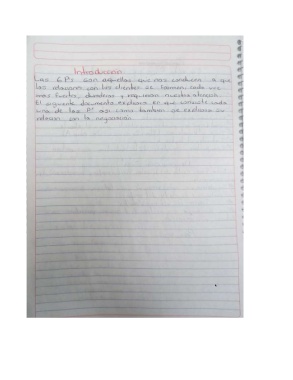 Introducción
Las 6 P's son aquellas que nos conducen a que
las relaciones con los clientes se formen cada vez
más fuertes, duraderas y requieran nuestra
El siguiente documento explicara en que consiste cada
una de las P's así como tambien se explicara su
relación con la negociación